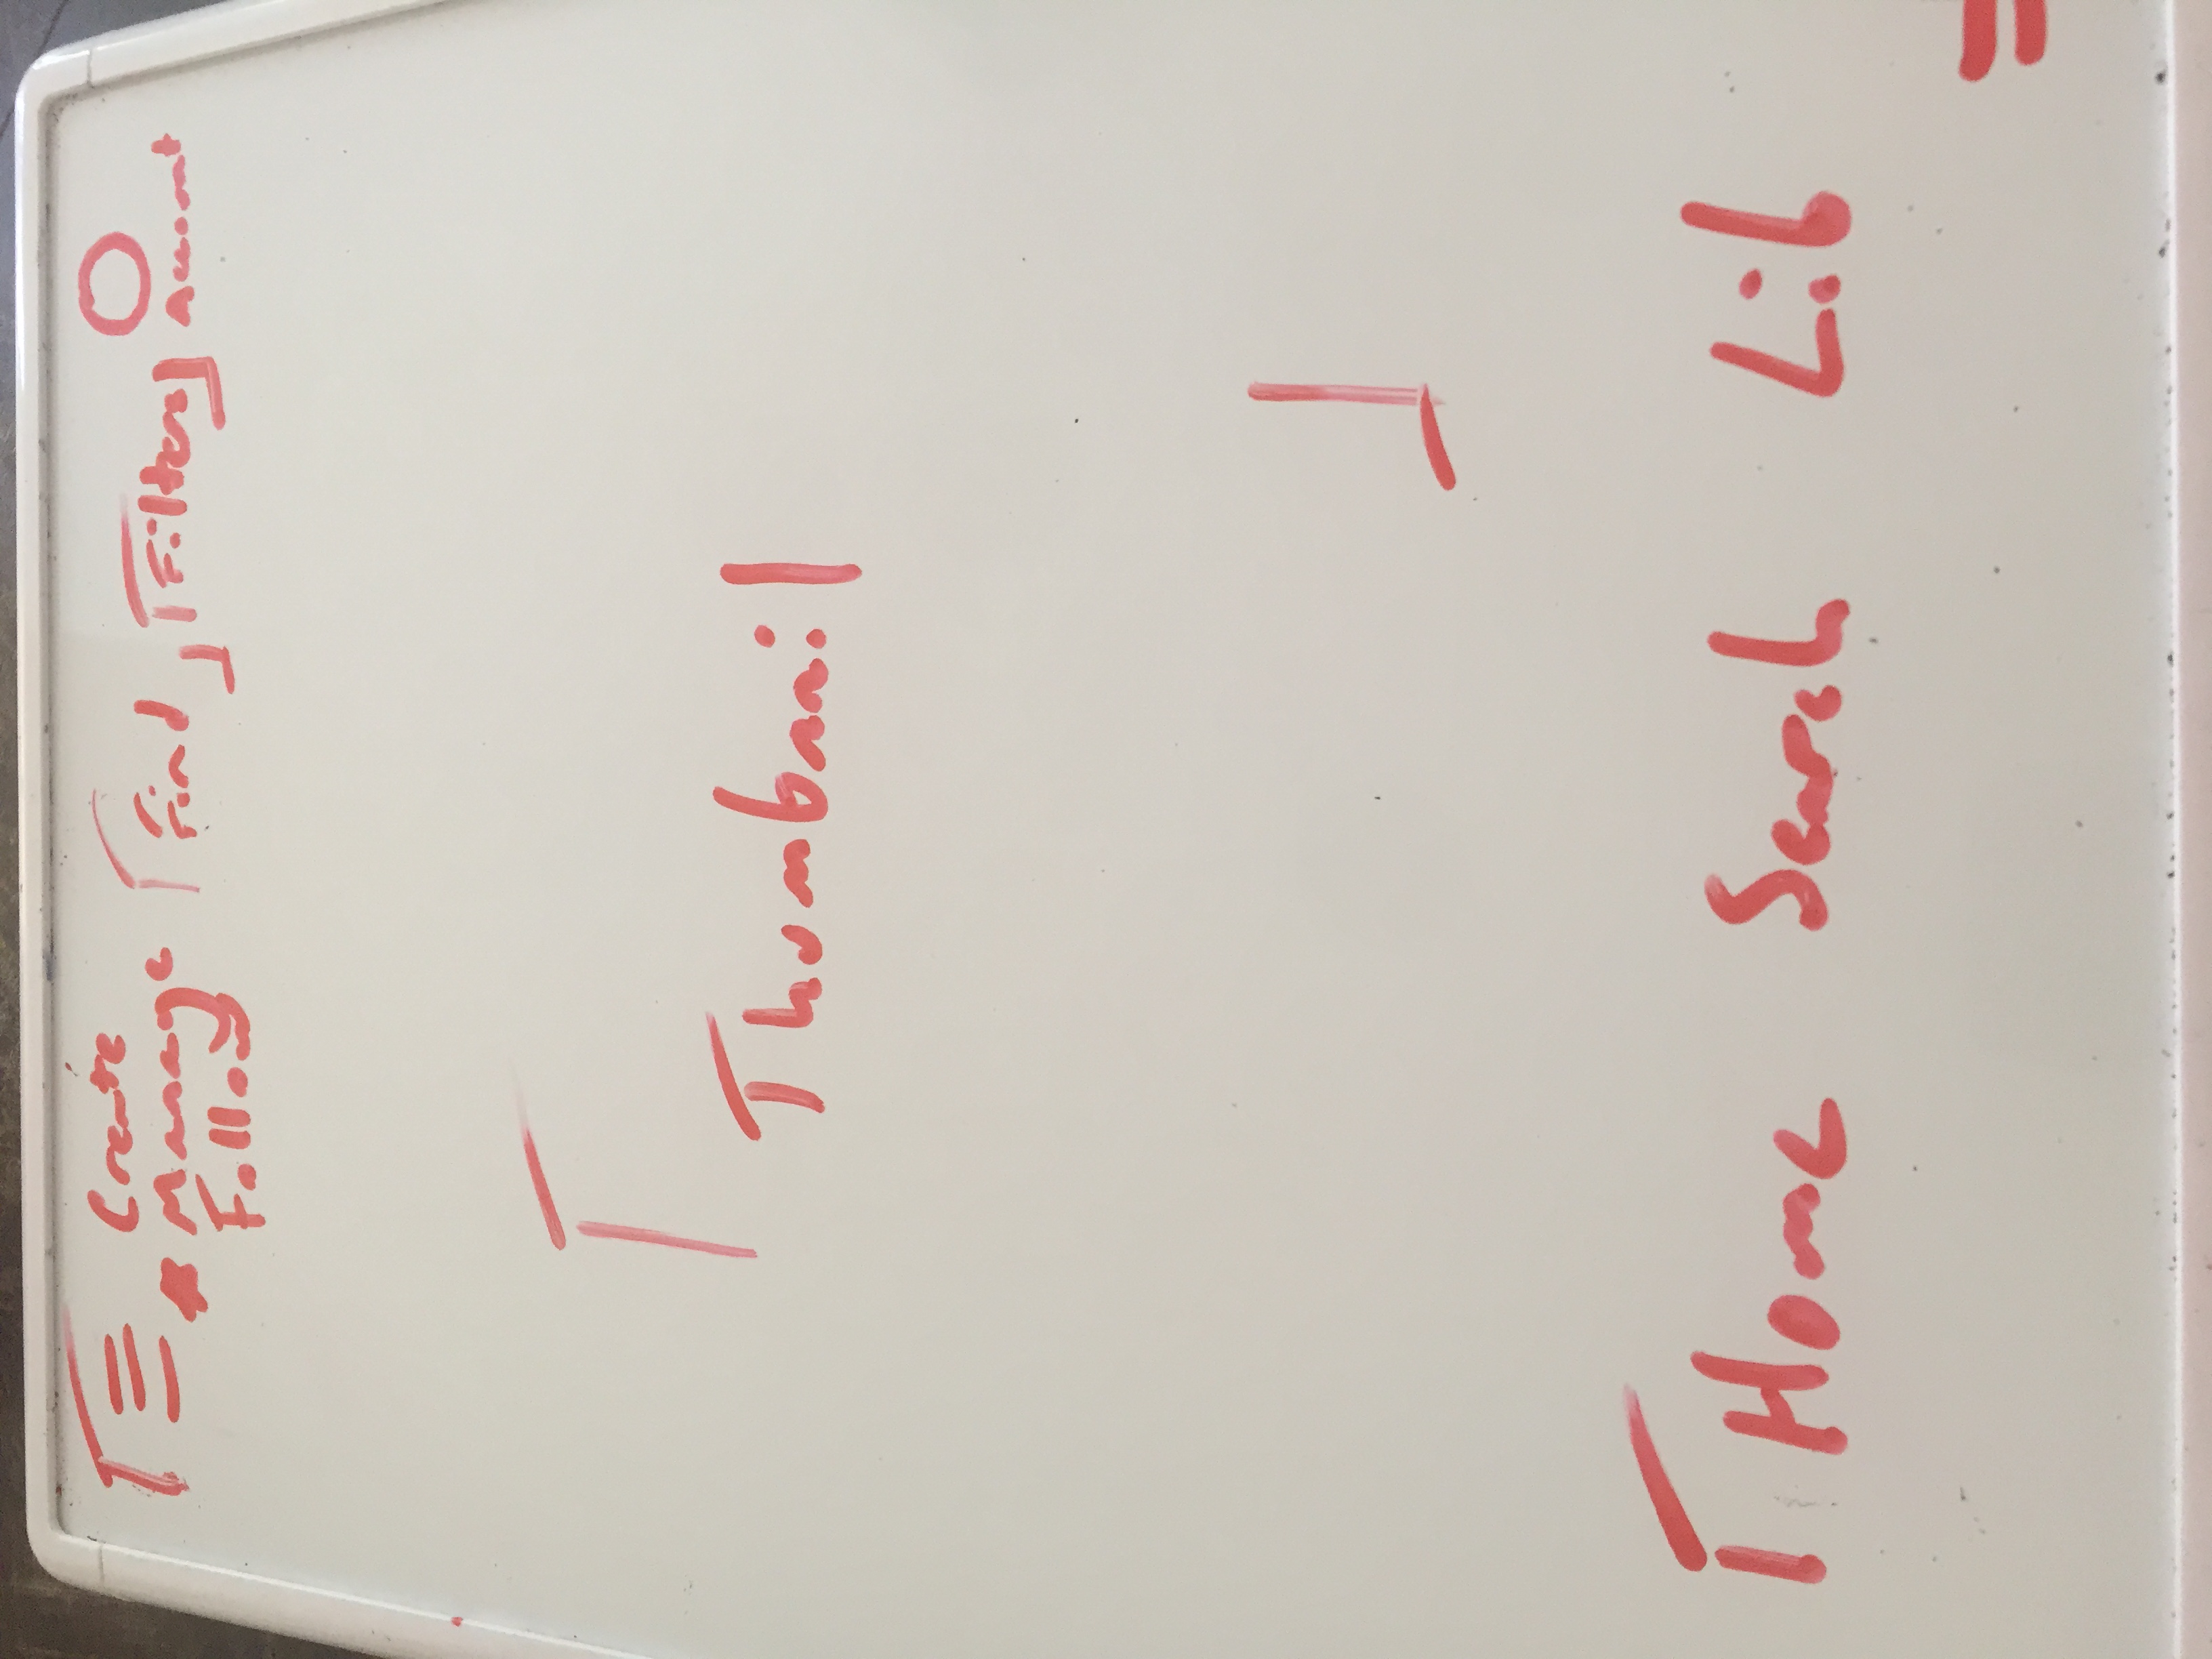 Create
Manage
Follow
Find
Filters
Account
Thumbnail
Home Search Lib